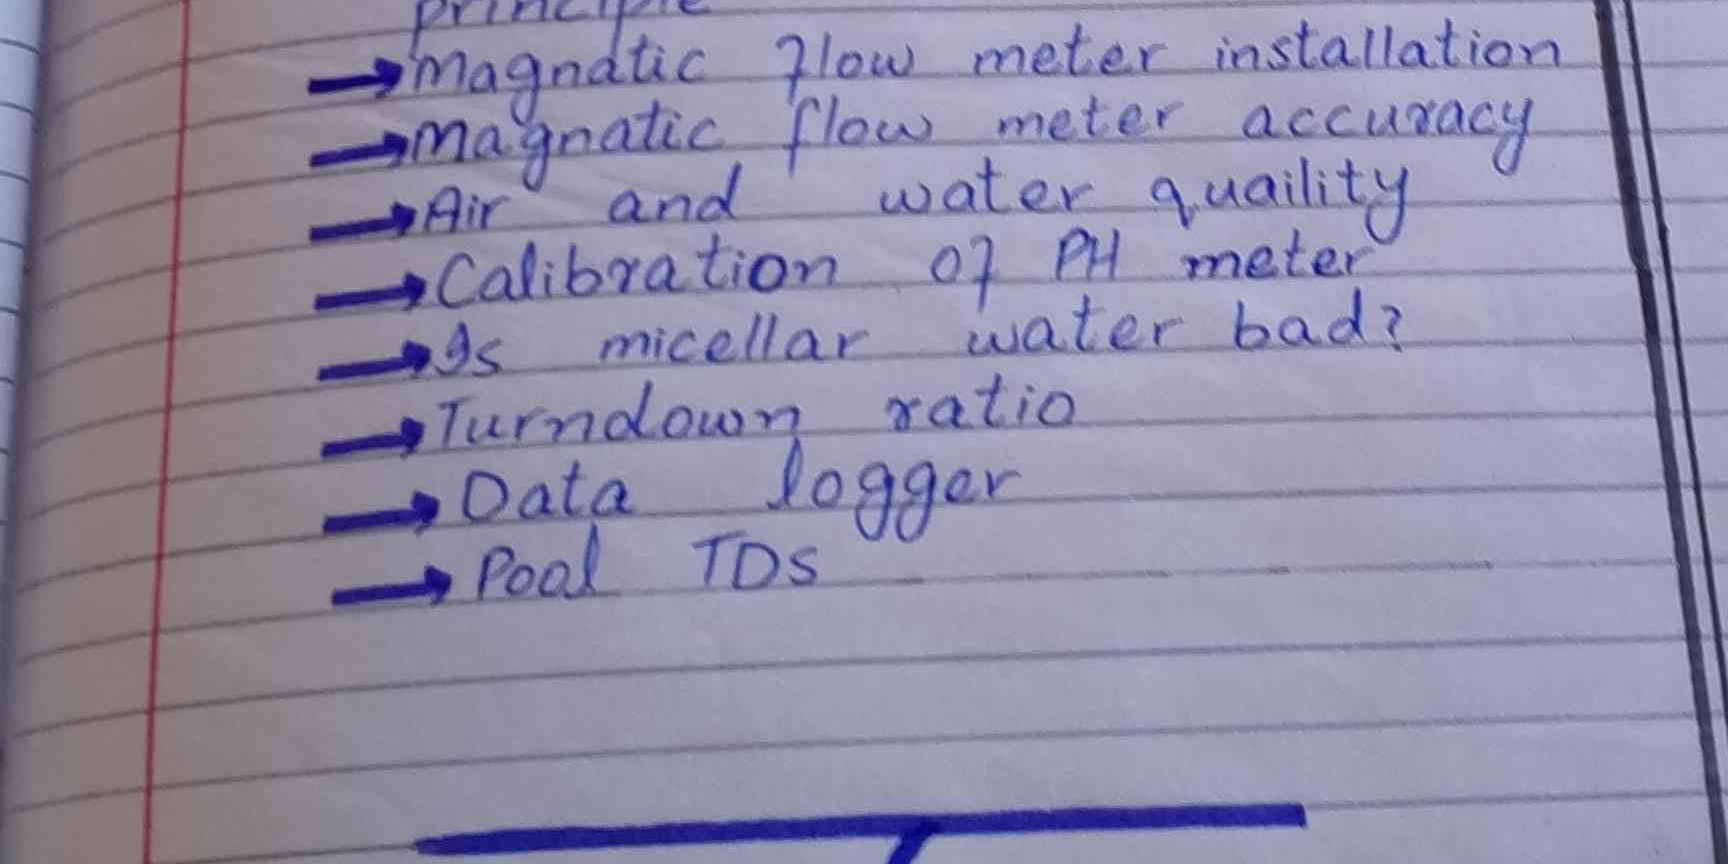 principle
→ Magnatic flow meter installation
→ Magnatic flow meter accuracy
→ Air and water quaility
→ Calibration of PH meter
→ Is micellar water bad?
→ Turndown ratio
→ Data logger
→ Pool TDS